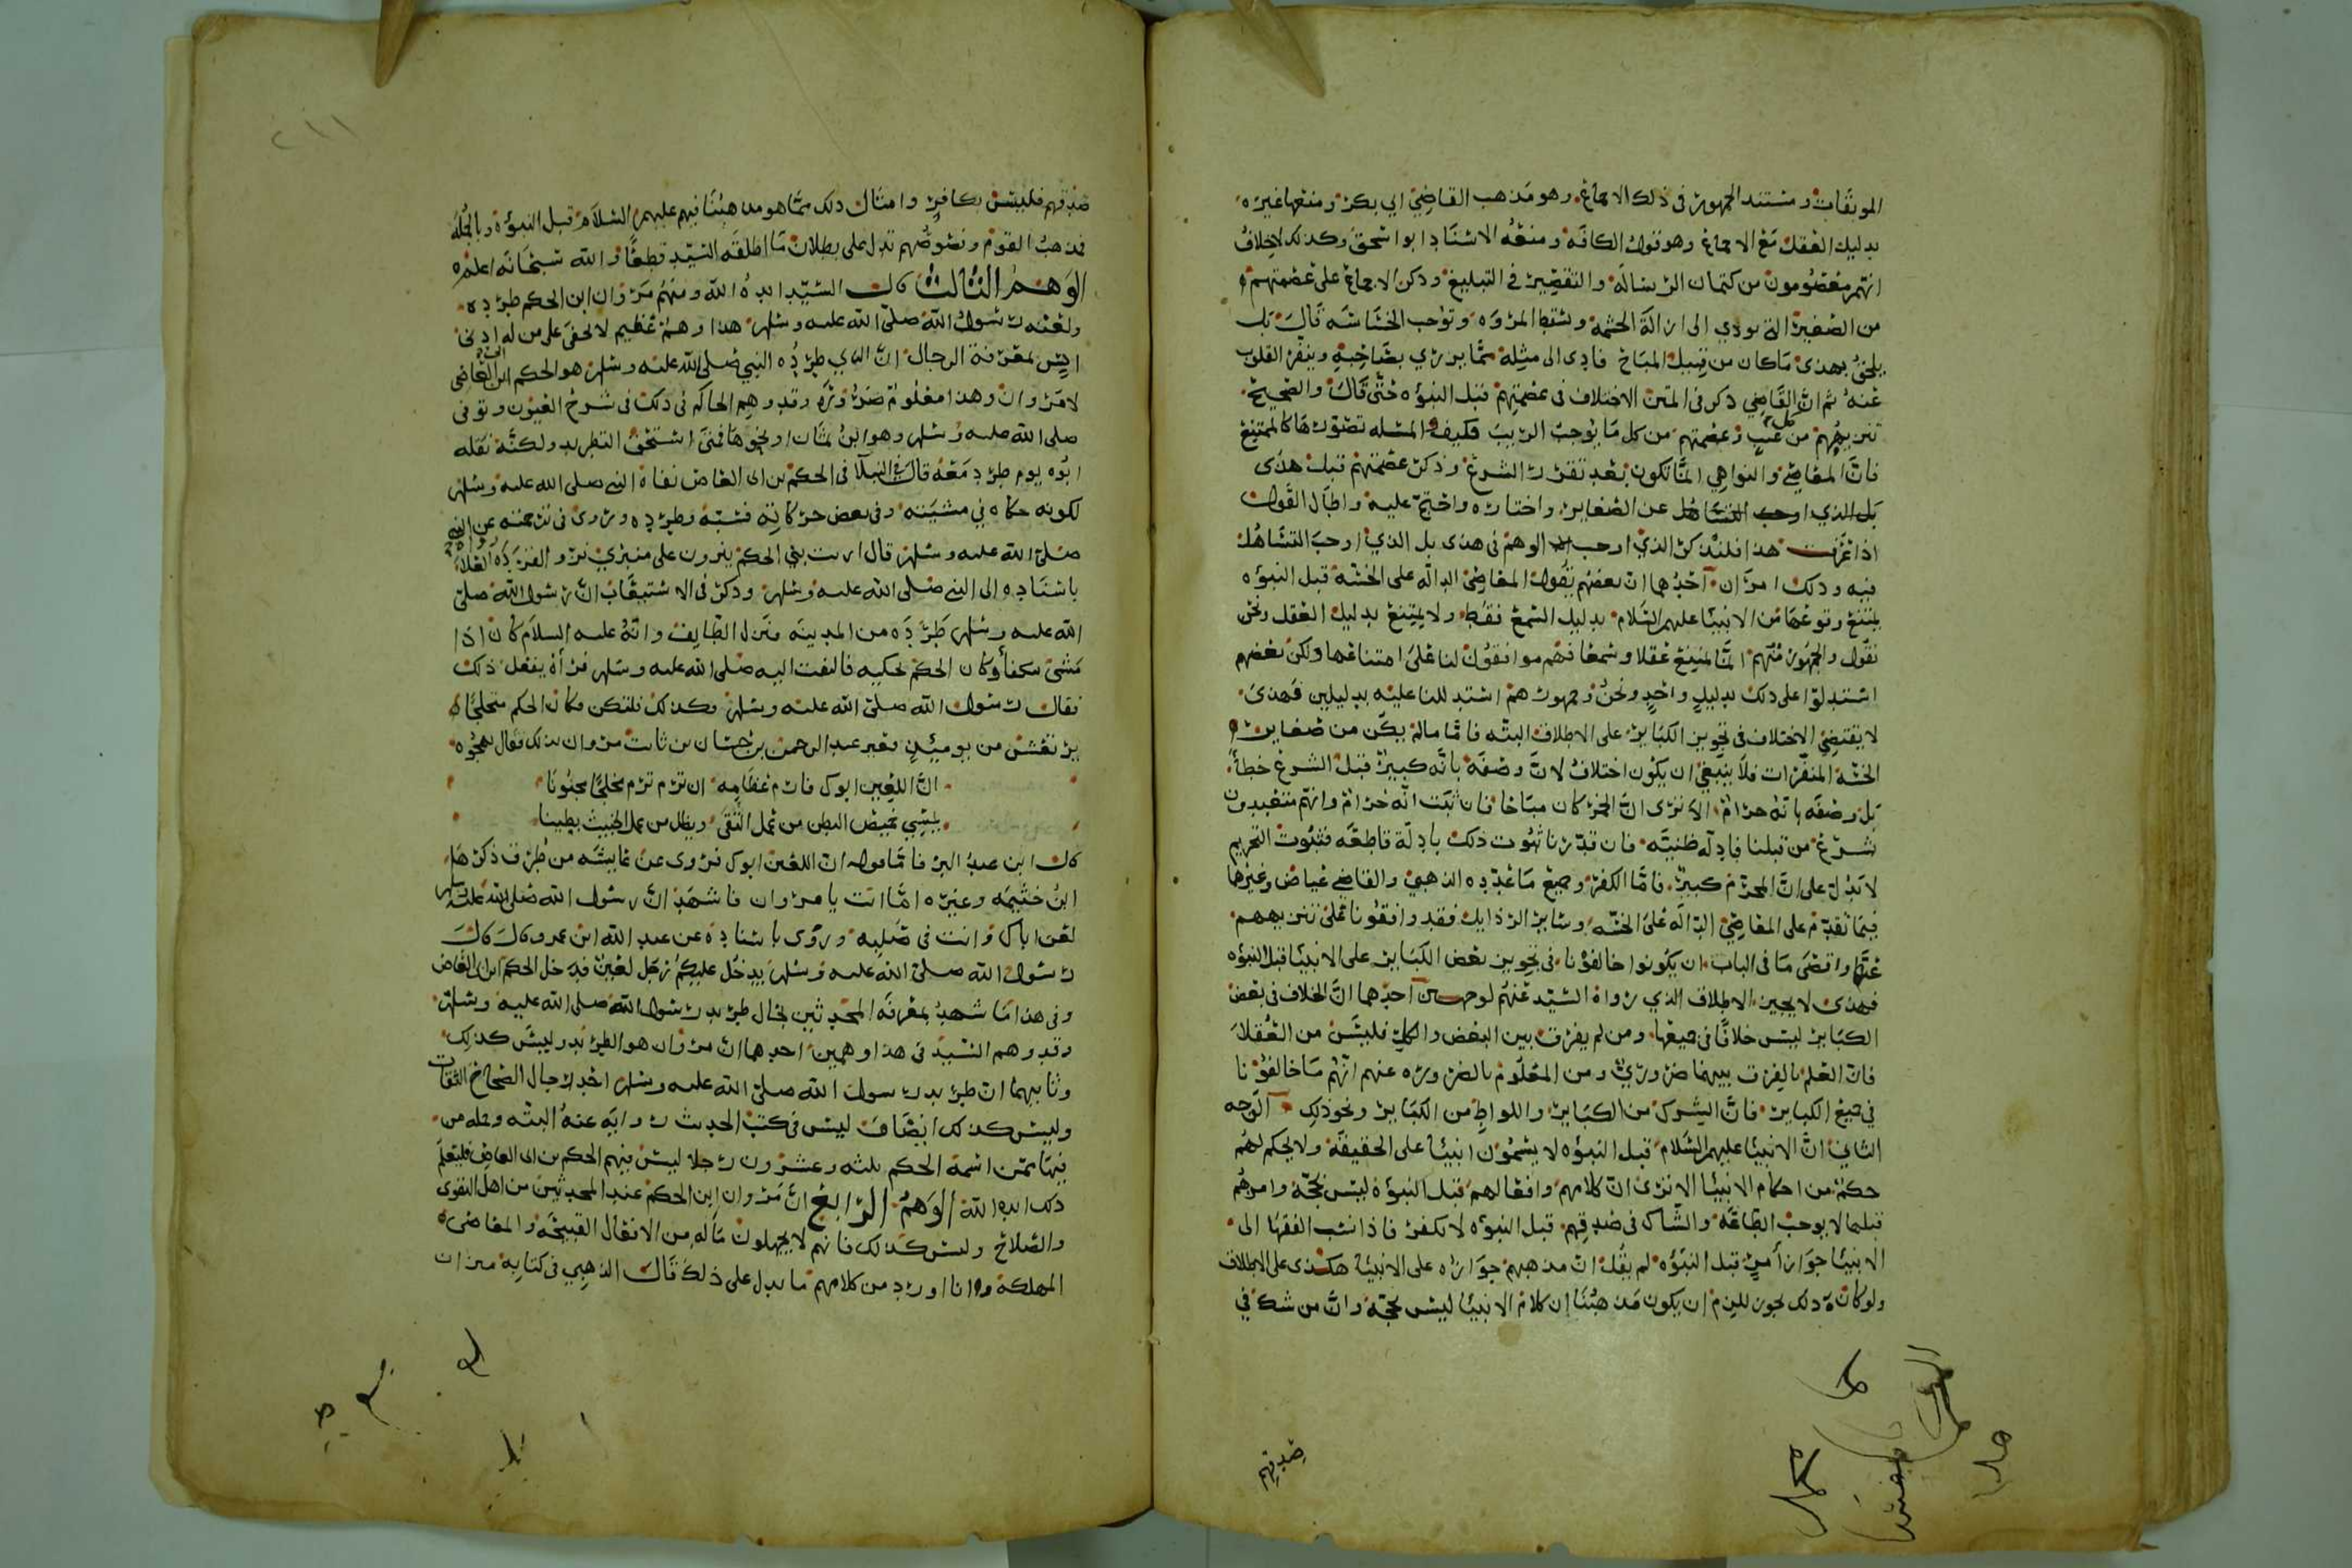 الموبقات ومستند الجمهور في ذلك الاجماع وهو مذهب القاضي ابي بكر ومنعها غيره
بدليل العقل مع الاجماع وهو قول الكافة ومنعه الاستاد ابو اسحق وكذلك لاخلاف
انهم معصومون من كتمان الرسالة والتقصير في التبليغ وذكر الاجماع على عصمتهم
من الصغيرة التي تودي الى ازالة الحشمة وتسقط المروه وتوجب الخساسه قال بل
يلحق بهذى ماكان من قبيل المباح فادى الى مثله مما يزري بصاحبه وينفر القلوب
عنه ثم ان القاضي ذكر في المتن الاختلاف في عصمتهم قبل النبوه حتى قال والصحيح
تنزيههم من كل عيب وعصمتهم من كل ما يوجب الريب فكيف والمسله تصورها كالممتنع
فان المعاصي والنواهي انما تكون بعد تقرر الشرع وذكر عصمتهم قبل هذى
بل الذي اوجب التساهل عن الصغاير واختاره واحتج عليه واطال القول
اذا عرفت هذا فلنذكر الذي اوجب الوهم في هذى بل الذي اوجب التساهل
فيه وذلك امران احدهما ان بعضهم يقول المعاصي الداله على الخسه قبل النبوه
يمتنع وقوعها من الانبيا عليهم السلام بدليل السمع فقط ولا يمتنع بدليل العقل ونحن
نقول والجمهور منهم انما يمتنع عقلا وسمعا فهم موافقون لنا على امتناعها ولكن بعضهم
استدلوا على ذلك بدليل واحد ونحن وجمهورهم استدللنا عليه بدليلين فهذى
لا يقتضي الاختلاف في تجويز الكباير على الاطلاق البته فاما مالم يكن من صغاير
الخسه المنفرات فلا ينبغي ان يكون اختلاف لان وصفه بانه كبيرة قبل الشرع خطأ
بل وصفه بانه حرام الا ترى ان الخمر كان مباحا فان ثبت انه حرام وانهم متعبدون
بشرع من قبلنا فادله ظنيه فان قدرنا ثبوت ذلك بادلة قاطعه فثبوت التحريم
لا يدل على ان المحرم كبيرة فاما الكفر وجميع ما عدده الذهبي والقاضي عياض وغيرهما
فيما تقدم على المعاصي الداله على الخسه وساير الرذايل فقد وافقونا على تنزيههم
عنها واقصى ما في الباب ان يكونوا خالفونا في تجويز بعض الكباير على الانبيا قبل النبوه
فهذى لا يجيز الاطلاق الذي رواه السيد عنهم لوجهين احدهما ان الخلاف في بعض
الكباير ليس خلافا في جميعها ومن لم يفرق بين البعض والكل فليس من العقلا
فان العلم بالفرق بينهما ضروري ومن المعلوم بالضروره عنهم انهم ما خالفونا
في جميع الكباير فان الشرك من الكباير واللواط من الكباير ونحو ذلك الوجه
الثاني ان الانبيا عليهم السلام قبل النبوه لا يسمون انبيا على الحقيقة ولا يحكم لهم
حكم من احكام الانبيا الا ترى ان كلامهم وافعالهم قبل النبوة ليس بحجة وامرهم
قبلها لا يوجب الطاعه والشاك في صدقهم قبل النبوه لا يكفر فاذا نسب الفقها الى
الانبيا جواز أمر قبل النبوه لم يقل ان مذهبهم جوازه على الانبيا هكذى على الاطلاق
ولو كان ذلك يجوز للزم ان يكون مذهبنا ان كلام الانبيا ليس بحجة وان من شك في
صدقهم
صدقهم فليس بكافر وامثال ذلك مما هو مذهبنا فيهم عليهم السلام قبل النبوة وبالجملة
فمذهب القوم ونصوصهم تدل على بطلان ما اطلقه السيد قطعا والله سبحانه اعلم
الوهم الثالث قال السيد ايده الله ومنهم مروان ابن الحكم طرده
ولعنه رسول الله صلى الله عليه وسلم هذا وهم عظيم لا يخفى على من له ادنى
انس بمعرفة الرجال ان الذي طرده النبي صلى الله عليه وسلم هو الحكم ابن ابي العاصي
لا مروان وهذا معلوم ضرورة وقد وهم الحاكم في ذلك في شرح العيون وتوفي
صلى الله عليه وسلم وهو ابن ثمان او نحوها فمتى استحق التطريد ولكنه نقله
ابوه يوم طرد معه قال في النبلا في الحكم بن ابي العاص نفاه النبي صلى الله عليه وسلم
لكونه حكاه في مشيته وفي بعض حركاته فسبه وطرده وروى في ترجمته عن النبي
صلى الله عليه وسلم قال رايت بني الحكم ينزون على منبري نزو القردة رواه العلاء
باسناده الى النبي صلى الله عليه وسلم وذكر في الاستيعاب ان رسول الله صلى
الله عليه وسلم طرده من المدينة فنزل الطايف وانه عليه السلام كان اذا
مشى تكفأ وكان الحكم يحكيه فالتفت اليه صلى الله عليه وسلم فرآه يفعل ذلك
فقال رسول الله صلى الله عليه وسلم فكذلك فلتكن فكان الحكم مختلجا
يرتعش من يوميئذ فعير عبد الرحمن بن حسان بن ثابت مروان بذلك فقال يهجوه
ان اللعين ابوك فارم عظامه ان ترم ترم مخلجا مجنونا
يمشي خميص البطن من عمل التقى ويظل من عمل الخبيث بطينا
قال ابن عبد البر فاما قوله ان اللعين ابوك فروى عن عايشه من طرق ذكرها
ابن خيثمه وغيره اما انت يا مروان فاشهد ان رسول الله صلى الله عليه وسلم
لعن اباك وانت في صلبه وروى باسناده عن عبد الله ابن عمرو قال قال
رسول الله صلى الله عليه وسلم يدخل عليكم رجل لعين فدخل الحكم ابن ابي العاص
وفي هذا ما شهد بمعرفه المحدثين بحال طريد رسول الله صلى الله عليه وسلم
وقد وهم السيد في هذا وهمين احدهما ان مروان هو الطريد وليس كذلك
وثانيهما ان طريد رسول الله صلى الله عليه وسلم احد رجال الصحاح الثقات
وليس كذلك ايضا فليس في كتب الحديث رواية عنه البته وجمله من
فيها ممن اسمه الحكم ثلثه وعشرون رجلا ليس فيهم الحكم بن ابي العاص فليعلم
ذلك ايده الله الوهم الرابع ان مروان ابن الحكم عند المحدثين من اهل التقوى
والصلاح وليس كذلك فانهم لا يجهلون ماله من الافعال القبيحة والمعاصي
المهلكة وانا اورد من كلامهم ما يدل على ذلك قال الذهبي في كتابه ميزان